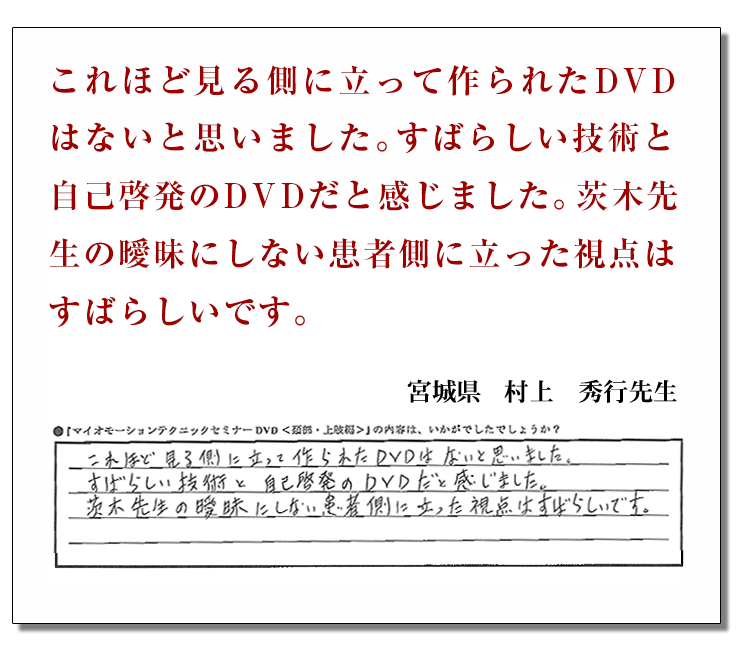 これほど見る側に立って作られたDVD
はないと思いました。すばらしい技術と
自己啓発のDVDだと感じました。茨木先
生の曖昧にしない患者側に立った視点は
すばらしいです。
宮城県　村上　秀行先生
●『マイオモーションテクニックセミナーDVD＜頚部・上肢編＞』の内容は、いかがでしたでしょうか？
これほど見る側に立って作られたDVDはないと思いました。
すばらしい技術と自己啓発のDVDだと感じました。
茨木先生の曖昧にしない患者側に立った視点はすばらしいです。